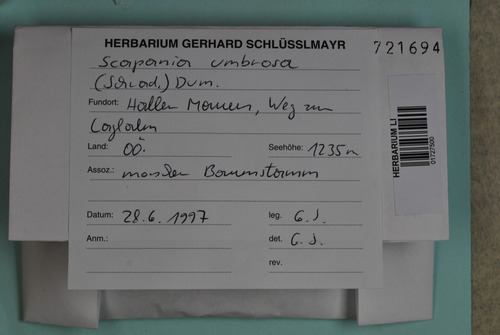 HERBARIUM GERHARD SCHLÜSSLMAYR
721694
Scapania umbrosa
(Schrad.) Dum.
Fundort: Haller Mauern, Weg zur
Land: OÖ. Seehöhe: 1235m
Assoz.: morscher Baumstamm
Datum: 28.6.1997 leg. G.S.
Anm.: det. G.S.
rev.
HERBARIUM LI
01727500